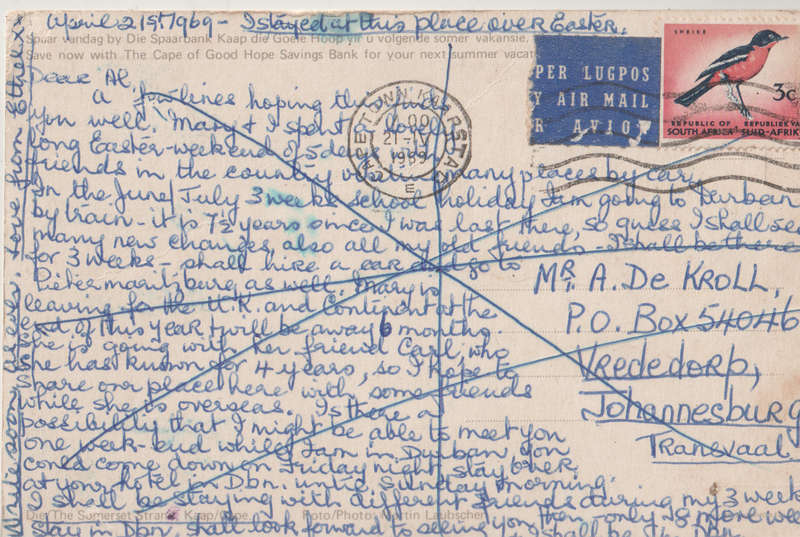 April 21st 1969 - I stayed at this place over Easter.
Spaar vandag by Die Spaarbank Kaap die Goeie Hoop vir u volgende somer vakansie.
Save now with The Cape of Good Hope Savings Bank for your next summer vacat
Dear Al,
A few lines hoping this finds
you well. Mary & I spent a lovely
long Easter-weekend of 5 days with
friends in the country visiting many places by car.
In the June/July 3 weeks school holiday I am going to Durban
by train - it is 7½ years since I was last there, so guess I shall see
many new changes, also all my old friends - I shall be there
for 3 weeks - shall hire a car and go to
Pietermaritzburg as well. Mary is
leaving for the U.K. and Continent at the
end of this year & will be away 6 months.
She is going with her friend Carl, who
she has known for 4 years, so I hope to
share our place here with some friends
while she is overseas. Is there a
possibility that I might be able to meet you
one week-end while I am in Durban, you
could come down on Friday night, stay over
at your hotel in Dbn. until Sunday morning.
I shall be staying with different friends during my 3 week
Die The Somerset Strand, Kaap/Cape. Foto/Photo: Martin Laubscher
stay in Dbn, shall look forward to seeing you
then only 8 more wee
I shall be in Dbn.
Write soon
Love from Ethel xx
PER LUGPOS
Y AIR MAIL
R AVION
SHRIKE
3c
REPUBLIC OF SOUTH AFRICA
REPUBLIEK VA SUID-AFRIK
21 IV
1969
E
MR. A. DE KROLL,
P.O. BOX 54046
VREDEDORP,
JOHANNESBURG
TRANSVAAL